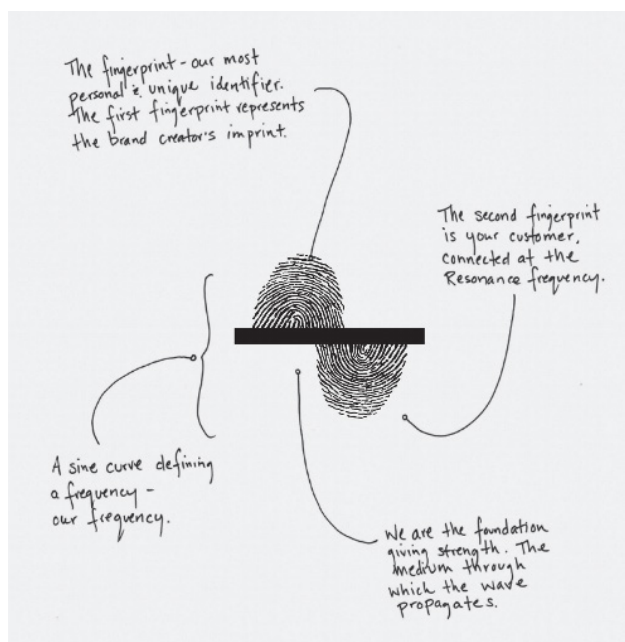 The fingerprint - our most
personal & unique identifier.
The first fingerprint represents
the brand creator's imprint.
The second fingerprint
is your customer,
connected at the
Resonance frequency.
A sine curve defining
a frequency -
our frequency.
We are the foundation
giving strength. The
medium through
which the wave
propagates.